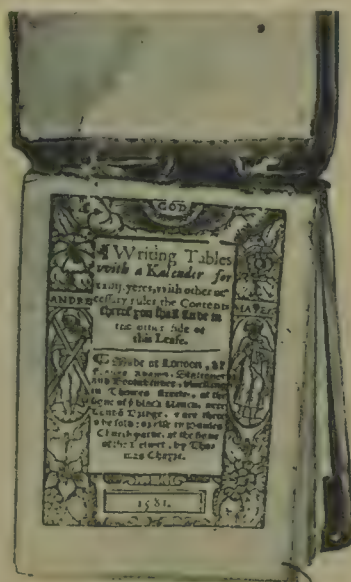 GOD
¶ Writing Tables
with a Kalender for
yeres, with other ne-
cessary rules the Contents
therof you shall finde in
the other side of
this Leafe.
ANDRE
¶ Made at London, by
Franke Adams, Stationer
and Booke binder, dwellinge
in Thomas streete, at the
signe of black Raven, neere
London and are there
to be sold: or else in Paules
Church yarde, at the signe
of the by Tho-
mas Chapie.
1581.